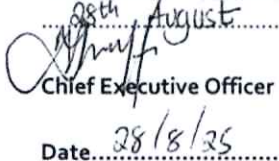 28th August
Chief Executive Officer
Date....28/8/25